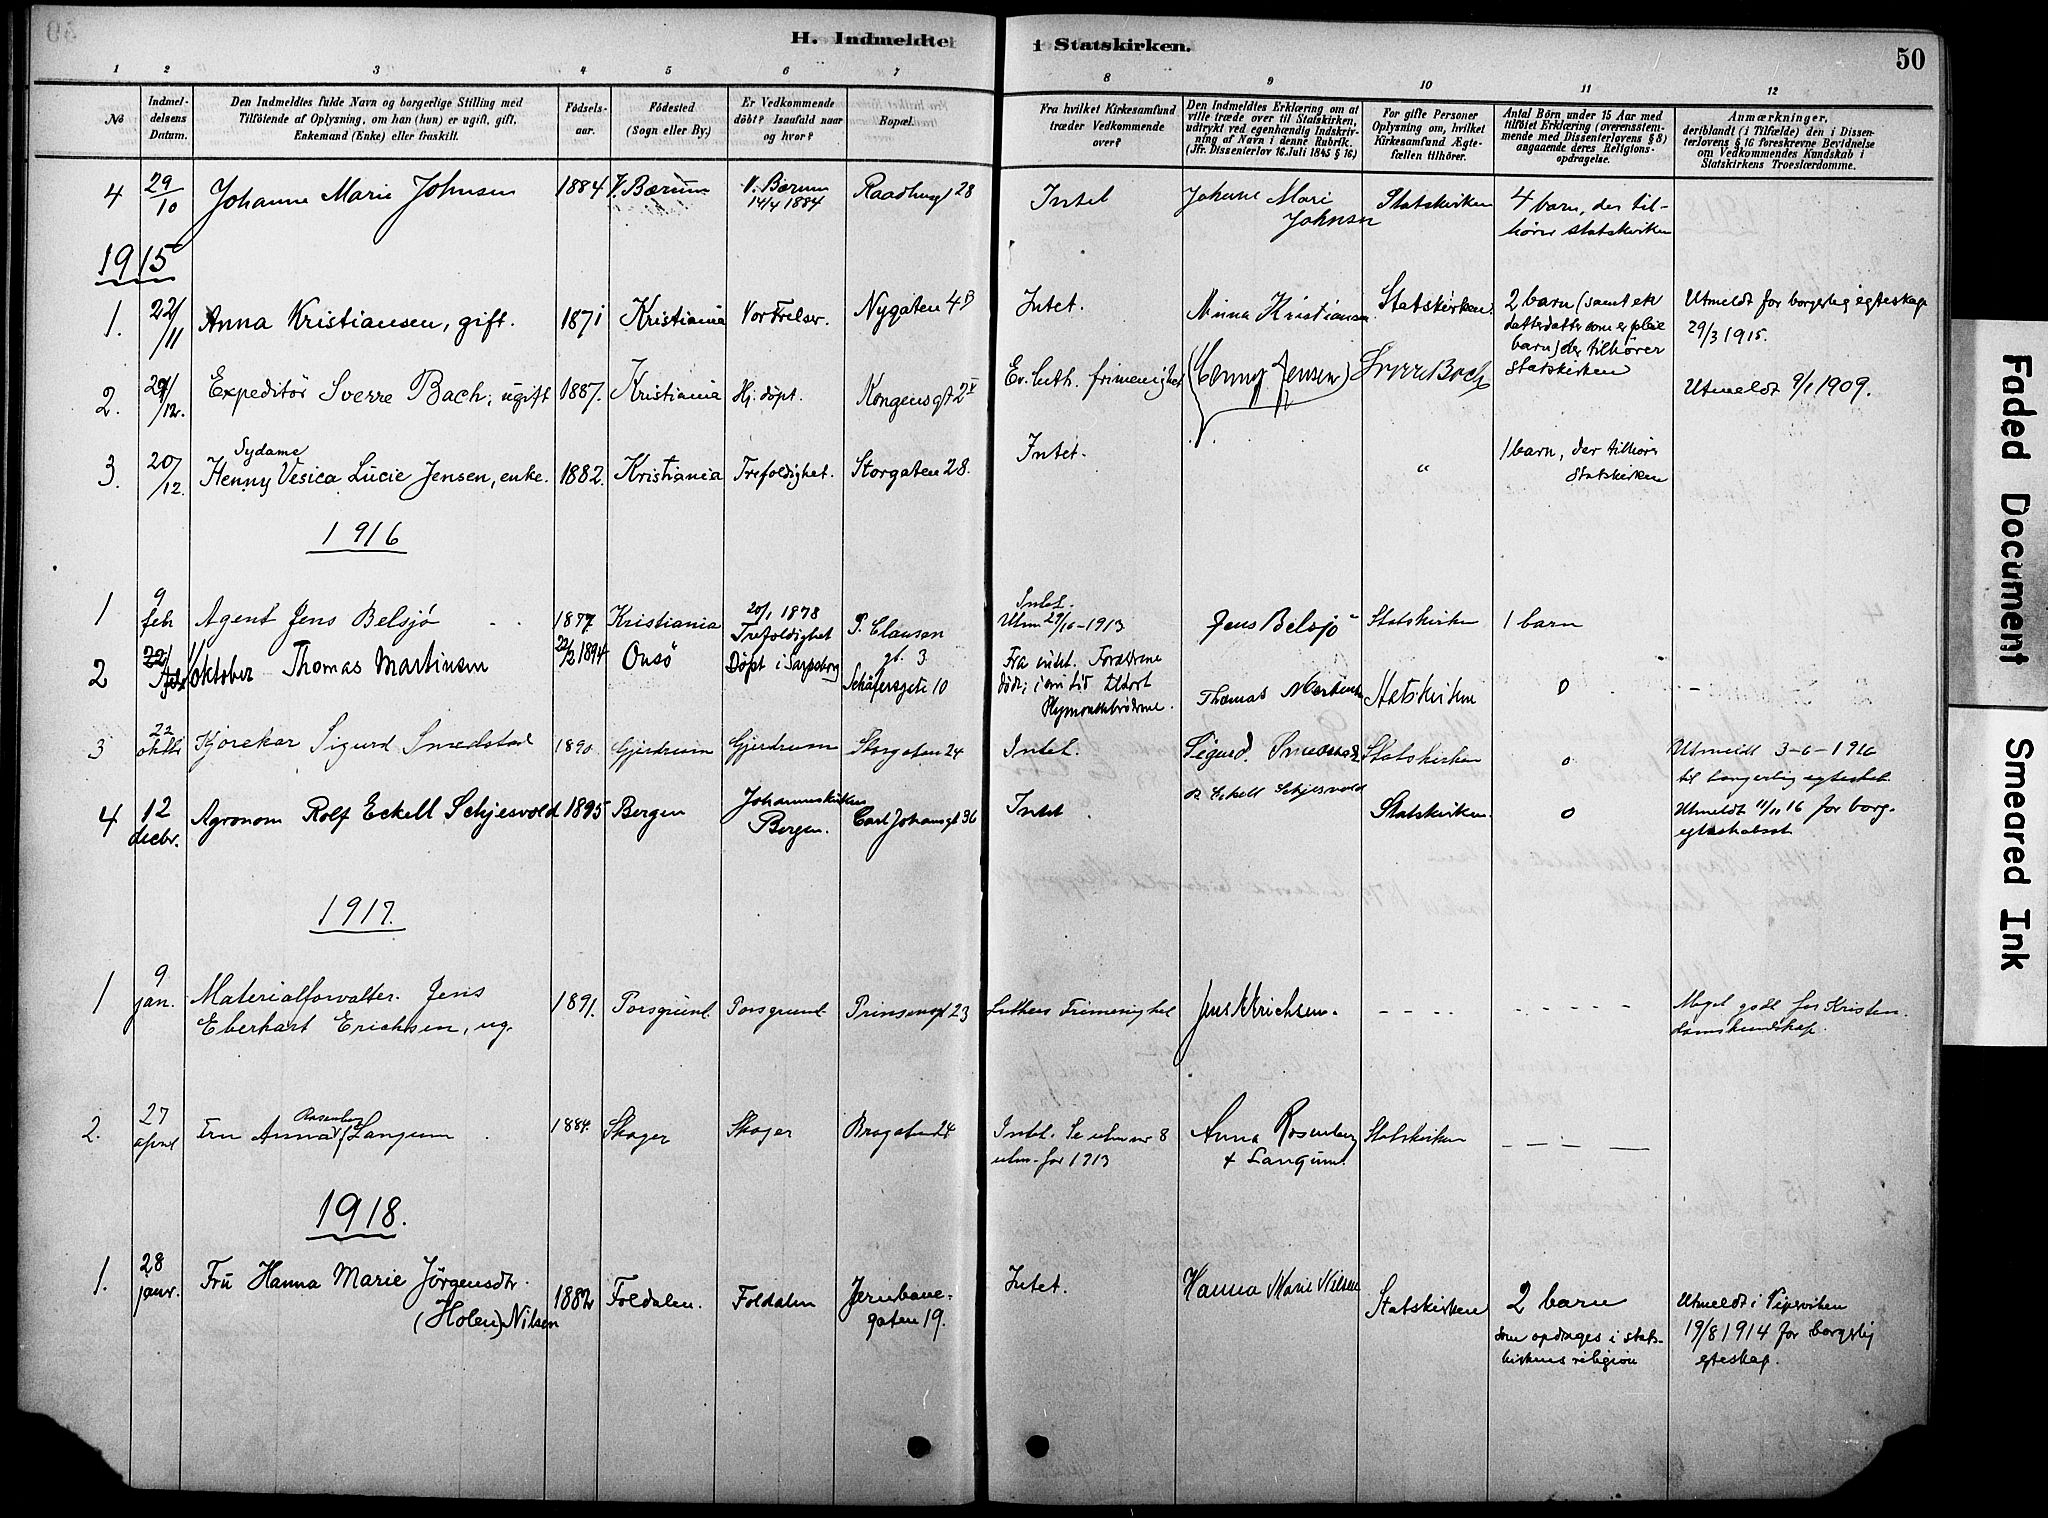 H. Indmeldte i Statskirken.
50
1 2 3 4 5 6 7 8 9 10 11 12
No
Indmel-
delsens
Datum.
Den Indmeldtes fulde Navn og borgerlige Stilling med
Tilföiende af Oplysning, om han (hun) er ugift, gift,
Enkemand (Enke) eller fraskilt.
Födsels-
aar.
Födested
(Sogn eller By.)
Er Vedkommende
döbt? Isaafald naar
og hvor?
Bopæl.
Fra hvilket Kirkesamfund
træder Vedkommende
over?
Den Indmeldtes Erklæring om at
ville træde over til Statskirken,
udtrykt ved egenhændig Indskriv-
ning af Navn i denne Rubrik.
(Jfr. Dissenterlov 16. Juli 1845 § 16)
For gifte Personer
Oplysning om, hvilket
Kirkesamfund Ægte-
fællen tilhörer.
Antal Börn under 15 Aar med
tilföiet Erklæring (overensstem-
mende med Dissenterlovens § 8)
angaaende deres Religions-
opdragelse.
Anmærkninger,
deriblandt (i Tilfælde) den i Dissen-
terlovens § 16 foreskrevne Bevidnelse
om Vedkommendes Kundskab i
Statskirkens Troeslærdomme.
4 29/10 Johanne Marie Johnsen 1884 V. Bærum V. Bærum 14/4 1884 Raadhusgt 28 Intet Johane Mari Johnsen Statskirken 4 barn, der til-
hører statskirken
1915
1. 22/11 Anna Kristiansen, gift. 1871 Kristiania Vor Frelser. Nygaten 4B Intet. Minna Kristiansen Statskirken. 2 barn (samt en
datterdatter som er pleie
barn) der tilhører
statskirken
Utmeldt for borgerlig egteskap
29/3 1915.
2. 29/12. Expeditör Sverre Bach, ugift 1887. Kristiania Hj. döpt. Kongensgt 2 Ev. luth. frimenighet (Henny Jensen) Sverre Bach Utmeldt 9/1 1909.
3. 20/12. Sydame
Henny Vesica Lucie Jensen, enke. 1882. Kristiania Trefoldighet. Storgaten 28. Intet. " 1 barn, der tilhører
Statskirken
1916
1 9 feb Agent Jens Belsjø 1877 Kristiania 20/1 1878
Trefoldighet P. Clausen
gt. 3 Intet.
Utm 29/10-1913 Jens Belsjo Statskirken 1 barn
2 11 oktober Thomas Martinsen 22/2 1894 Onsö Döpt i Sarpsborg Schäfersgete 10 Fra intet. Forældrene
døde; i sin tid tilhørt
Plymouthbrødrene. Thomas Martinsen Statskirken 0 -
3 22 oktbr Kjørekar Sigurd Smedstad 1890. Gjerdrum Gjerdrum Storgaten 24 Intet. Sigurd. Smedstad Statskirken 0 Utmeldt 3-6-1916
til borgerlig egteskab
4 12 decbr. Agronom Rolf Eckell Schjesvold 1895 Bergen Johanneskirken
Bergen. Carl Johansgt 36 Intet. R Eckell Schjesvold Statskirken. 0 Utmeldt 11/11 16 for borg.
egteskabsst.
1917.
1 9 jan. Materialforvalter. Jens
Eberhart Erichsen, ug. 1891. Porsgrund. Porsgrund. Prinsensgt 23 Luthers Frimenighet Jens Erichsen. - - - - - - - - - Meget godt for Kristen.
domskundskap.
2. 27 april Fru Anna Rosenberg Langum 1884. Skoger Skoger Brogaten 24 Intet. Se utm nr 8
utm. for 1913 Anna Rosenberg
f Langum. Statskirken - - - -
1918.
1. 28 janr. Frü Hanna Marie Jörgensdtr.
(Holen) Nilsen 1882 Foldalen. Foldalen Jernbane-
gaten 19. Intet. Hanna Marie Nilsen Statskirken 2 barn
som opdrages i stats-
kirkens religion
Utmeldt i Pipervïken
19/8 1914 for borgerlig
egteskap.
Faded Document
Smeared Ink